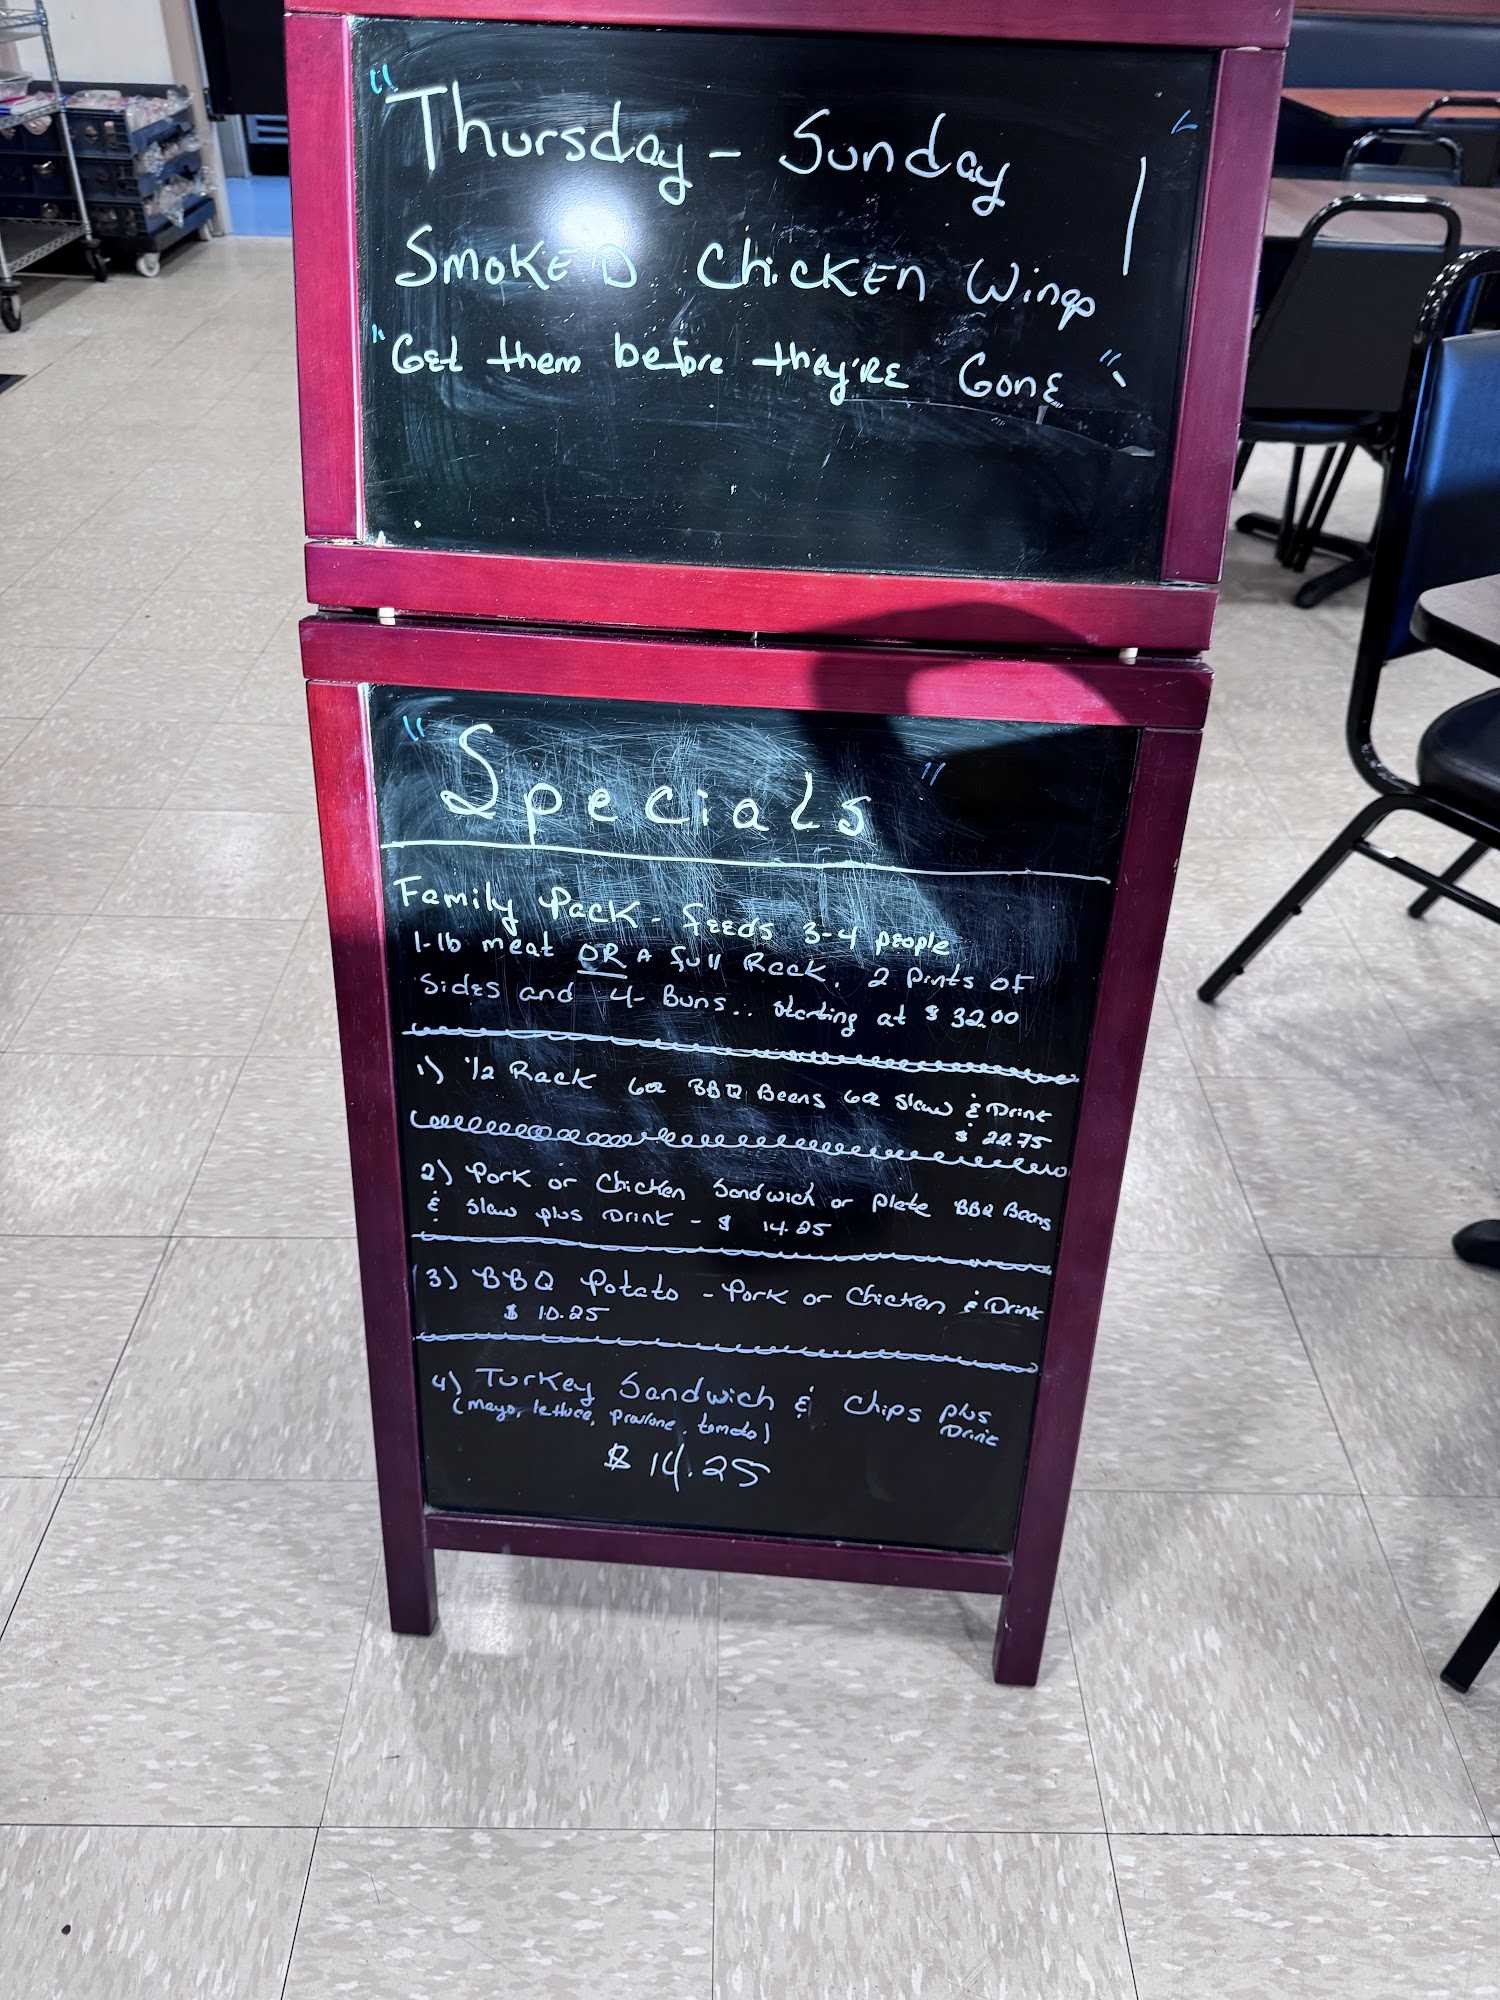 "Thursday - Sunday"
Smoked Chicken Wings
"Get them before they're Gone"
"Specials"
Family Pack - feeds 3-4 people
1-lb meat OR A full Rack, 2 Pints of
Sides and 4- Buns.. starting at $32.00
1) 1/2 Rack 6oz BBQ Beans 6oz Slaw & Drink
$22.75
2) Pork or Chicken Sandwich or plate BBQ Beans
& Slaw plus Drink - $ 14.25
3) BBQ Potato - Pork or Chicken & Drink
$ 10.25
4) Turkey Sandwich & Chips plus
Drink
(mayo, lettuce, provlone, tomato)
$ 14.25